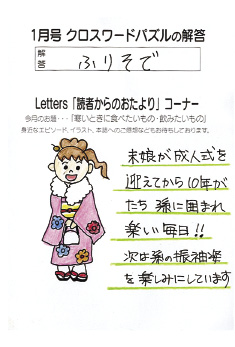 1月号 クロスワードパズルの解答
解答
ふりそで
Letters「読者からのおたより」コーナー
今月のお題・・・「寒いときに食べたいもの・飲みたいもの」
身近なエピソード、イラスト、本誌へのご感想などもお待ちしております。
末娘が成人式を
迎えてから10年が
たち 孫に囲まれ
楽しい毎日!!
次は孫の振袖姿
を楽しみにしています